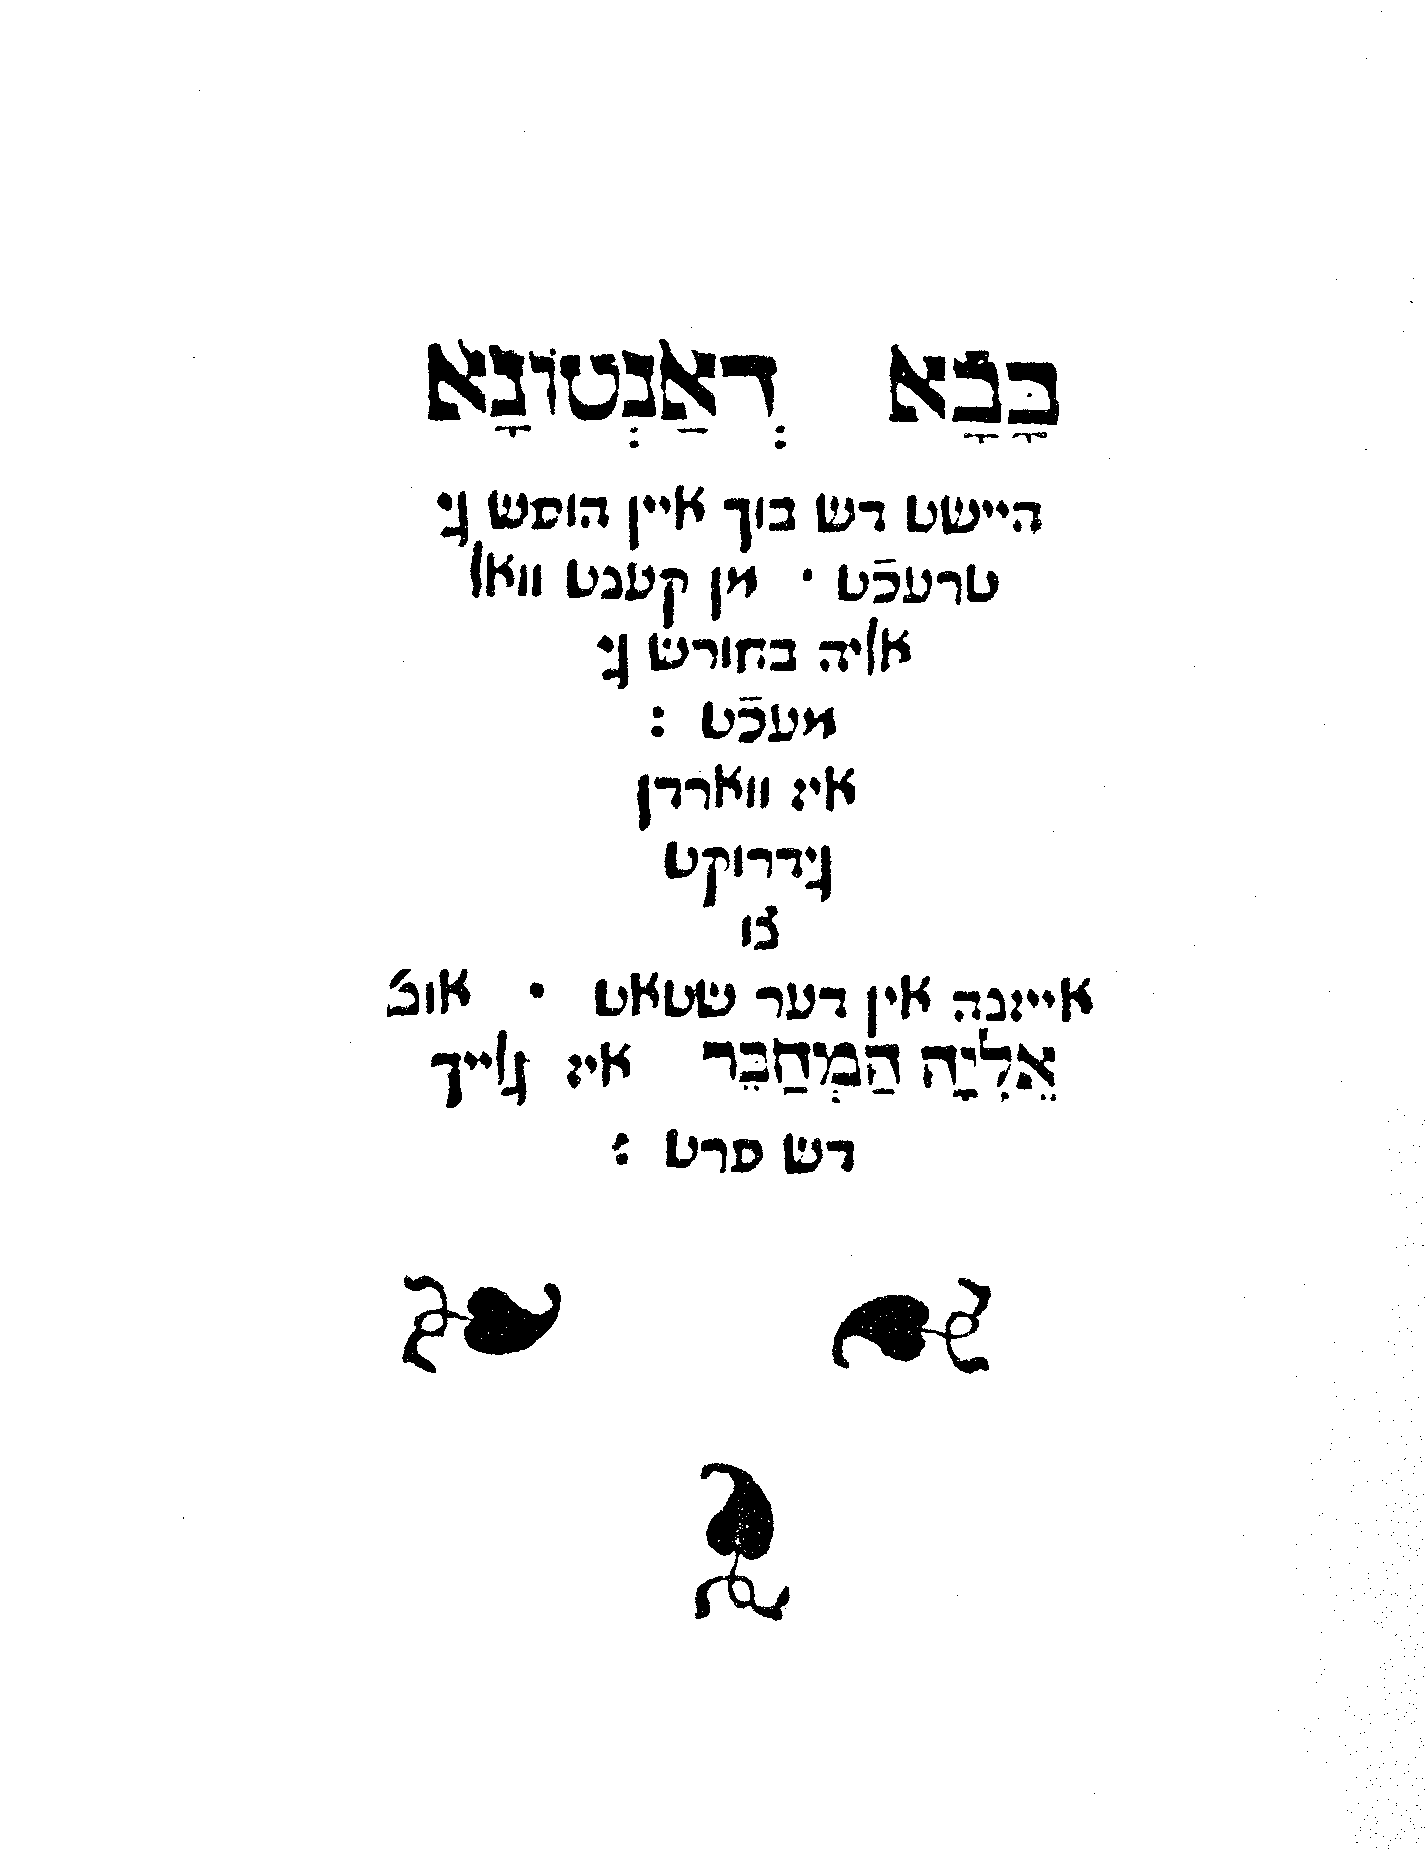 בָּבָֿא דְאַנְטוֹנָא
היישט דש בוך איין הופש גי
טרעכֿט · מן קענט וואל
אליה בחורש גי
מעכֿט :
איז ווארדן
גידרוקט
צו
אייזנה אין דער שטאט · אונ׳
אֵלִיָה הַמְחַבֵּר איז גלייך
דש פרט :